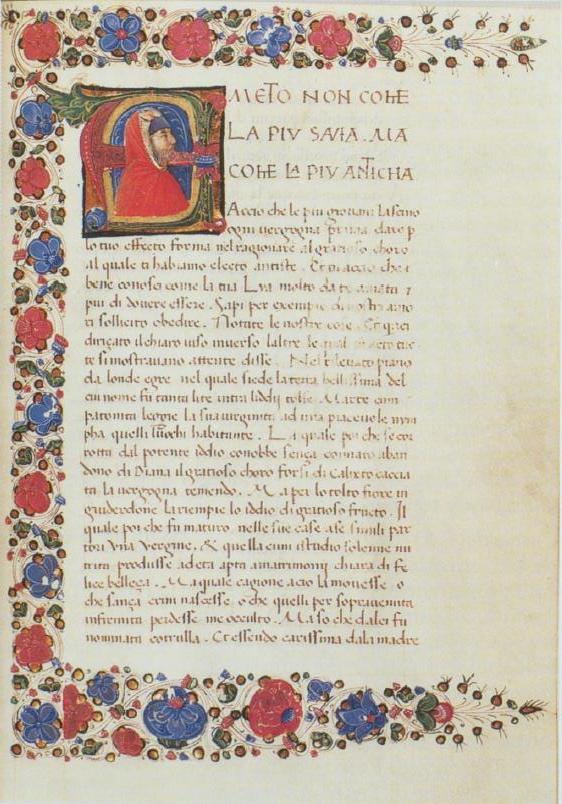 AMETO NON COME
LA PIU SAVIA. MA
COME LA PIU ANTICHA
Accio che le piu giovani lascino
ogni vergogna prima daro p
lo tuo effecto forma nel ragionare al gratioso choro
al quale ti habiamo electo antiste. Et in accio che i
bene conosci come la tua Lya molto da te amata ᴣ
piu di dovere essere. Sapi per exempio di nostri amo
ri sollicito obedire. Notate le nostre cose. Et quaci
diriçato il chiaro viso inverso laltre le quali
te si mostravano attente disse. Nel rilevato piano
da londe egre nel quale siede la terra bellissima del
cui nome fu tanta lite intra liddij Marte
la sua verginita ad una piacevole nym
pha quelli luochi habitante. La quale poi che se cor
rotta dal potente iddio conobbe sença connato aban
dono di Diana il gratioso choro forsi di Calixto caccia
ta la vergogna temendo. Ma per lo tolto fiore in
guiderdone la riempie lo iddio di gratioso fructo. Il
quale poi che fu maturo. nelle sue case a se simili par
tori una vergine. & quella cum istudio solenne nu
trita produsse ad eta apta a matrimonij chiara di fe
lice belleça. Ma quale cagione a cio la movesse. o
che sança crini nascesse. o che quelli per sopravenuta
infirmita perdesse. me occulto. Ma so che da lei fu
nominata cotrulla. Et essendo carissima dala madre